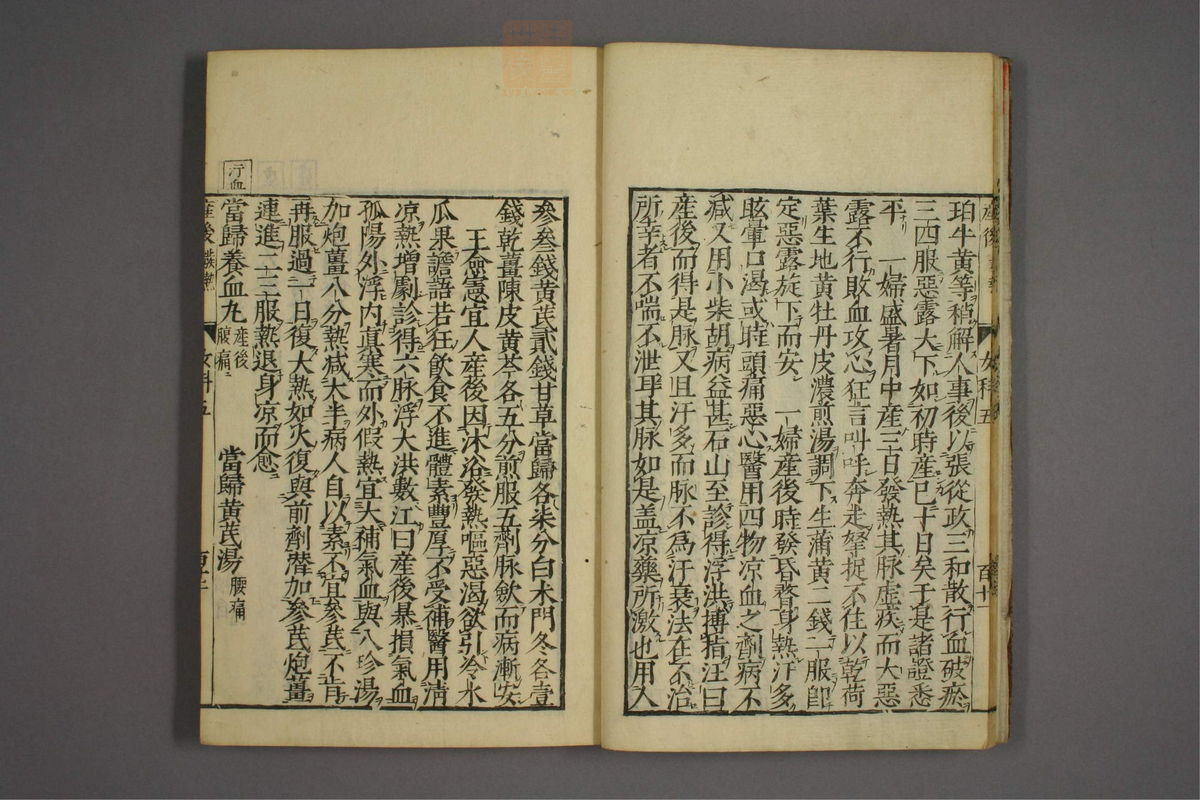 珀牛黄等稍解人事後以張從政三和散行血破瘀
三四服惡露大下如初時産已十日矣于是諸證悉
平　一婦盛暑月中産三日發熱其脉虚疾而大惡
露不行敗血攻心狂言叫呼奔走拏捉不住以乾荷
葉生地黄牡丹皮濃煎湯調下生蒲黄二錢一服即
定惡露旋下而安　一婦産後時發昏瞀身熱汗多
眩暈口渴或時頭痛惡心醫用四物凉血之劑病不
减又用小柴胡病益甚石山至診得浮洪搏指汪曰
産後而得是脉又且汗多而脉不爲汗衰法在不治
所幸者不喘不泄耳其脉如是盖凉藥所激也用人
參叁錢黄芪貳錢甘草當歸各柒分白术門冬各壹
錢乾薑陳皮黄芩各五分煎服五劑脉歛而病漸安
王僉憲宜人産後因沐浴發熱嘔惡渴欲引冷水
瓜果譫語若狂飲食不進體素豐厚不受補醫用清
凉熱增劇診得六脉浮大洪數江曰産後暴損氣血
孤陽外浮内真寒而外假熱宜大補氣血與八珍湯
加炮薑八分熱减大半病人自以素不宜參芪不肯
再服過一日復大熱如火復與前劑潜加參芪炮薑
連進二三服熱退身凉而愈
行血
當歸養血丸 産後腹痛　當歸黄芪湯 腰痛
産後
女科五
百十一